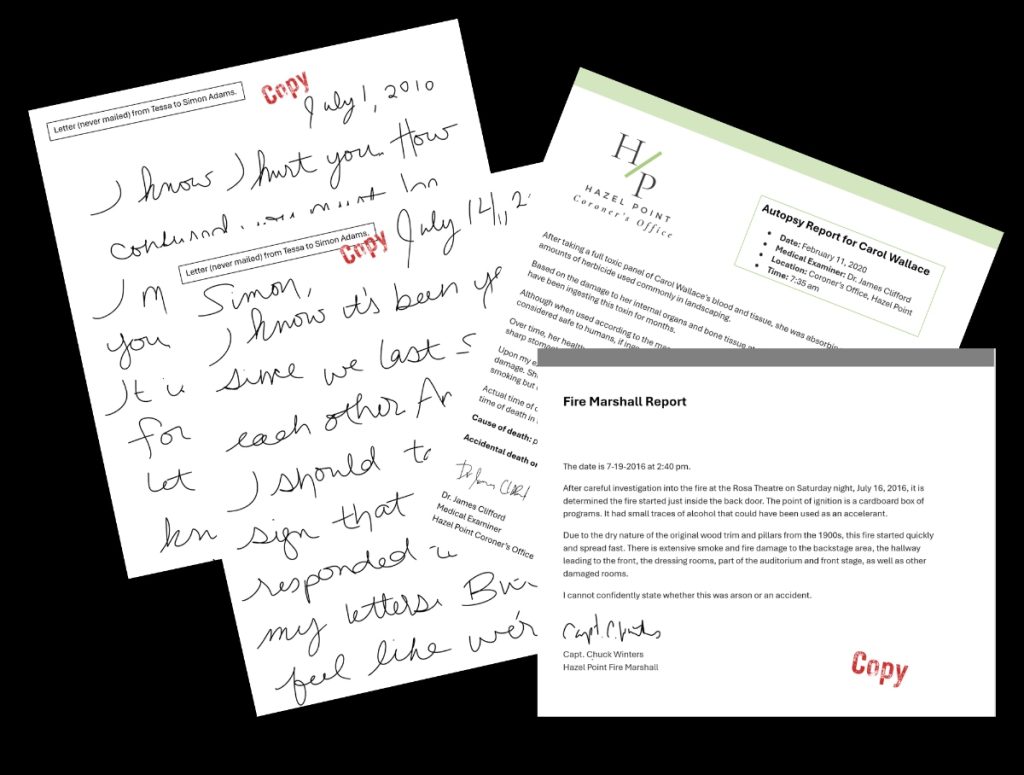 Letter (never mailed) from Tessa to Simon Adams.
Copy
July 1, 2010
I know I hurt you. How
confused
I'm
you
It is
for
let
Letter (never mailed) from Tessa to Simon Adams.
Copy
July 14,
Simon,
I know it's been
since we last
each other
I should
sign that
responded
my letters.
feel like we're
H/P
HAZEL POINT
Coroner's Office
Autopsy Report for Carol Wallace
Date: February 11, 2020
Medical Examiner: Dr. James Clifford
Location: Coroner's Office, Hazel Point
Time: 7:35 am
After taking a full toxic panel of Carol Wallace's blood and tissue, she was absorbing
amounts of herbicide used commonly in landscaping.
Based on the damage to her internal organs and bone tissue
have been ingesting this toxin for months.
Although when used according to the
considered safe to humans, if
Over time, her
sharp
Upon my
damage.
smoking but
Actual time of
time of death in
Cause of death:
Accidental death or
Dr. James Clifford
Medical Examiner
Hazel Point Coroner's Office
Fire Marshall Report
The date is 7-19-2016 at 2:40 pm.
After careful investigation into the fire at the Rosa Theatre on Saturday night, July 16, 2016, it is
determined the fire started just inside the back door. The point of ignition is a cardboard box of
programs. It had small traces of alcohol that could have been used as an accelerant.
Due to the dry nature of the original wood trim and pillars from the 1900s, this fire started quickly
and spread fast. There is extensive smoke and fire damage to the backstage area, the hallway
leading to the front, the dressing rooms, part of the auditorium and front stage, as well as other
damaged rooms.
I cannot confidently state whether this was arson or an accident.
Capt. C. Winters
Capt. Chuck Winters
Hazel Point Fire Marshall
Copy